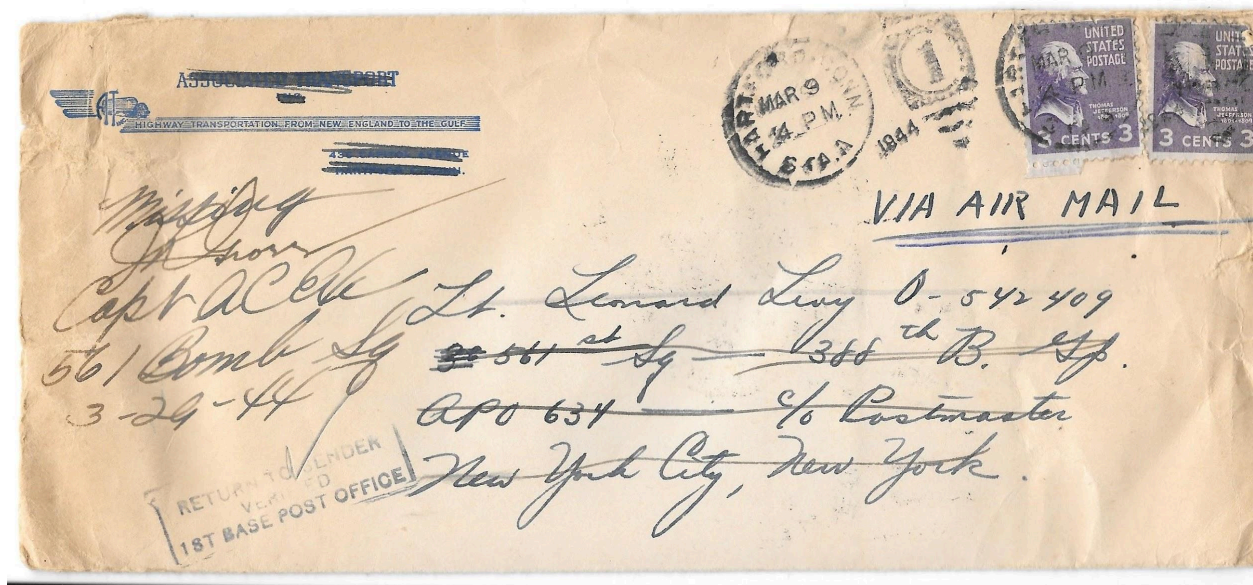 AT
HIGHWAY TRANSPORTATION FROM NEW ENGLAND TO THE GULF
HARTFORD, CONN
MAR 9
4 P.M.
STA.A
1944
1
UNITED
STATES
POSTAGE
THOMAS
JEFFERSON
1801-1809
3 CENTS 3
UNITED
STATES
POSTAGE
THOMAS
JEFFERSON
1801-1809
3 CENTS 3
VIA AIR MAIL
Missing
Capt AC
561 Bomb Sq
3-29-44
Lt. Leonard Levy O-542409
561st Sq — 388th B. Gp.
APO 634 — c/o Postmaster
New York City, New York.
RETURN TO SENDER
VERIFIED
1ST BASE POST OFFICE